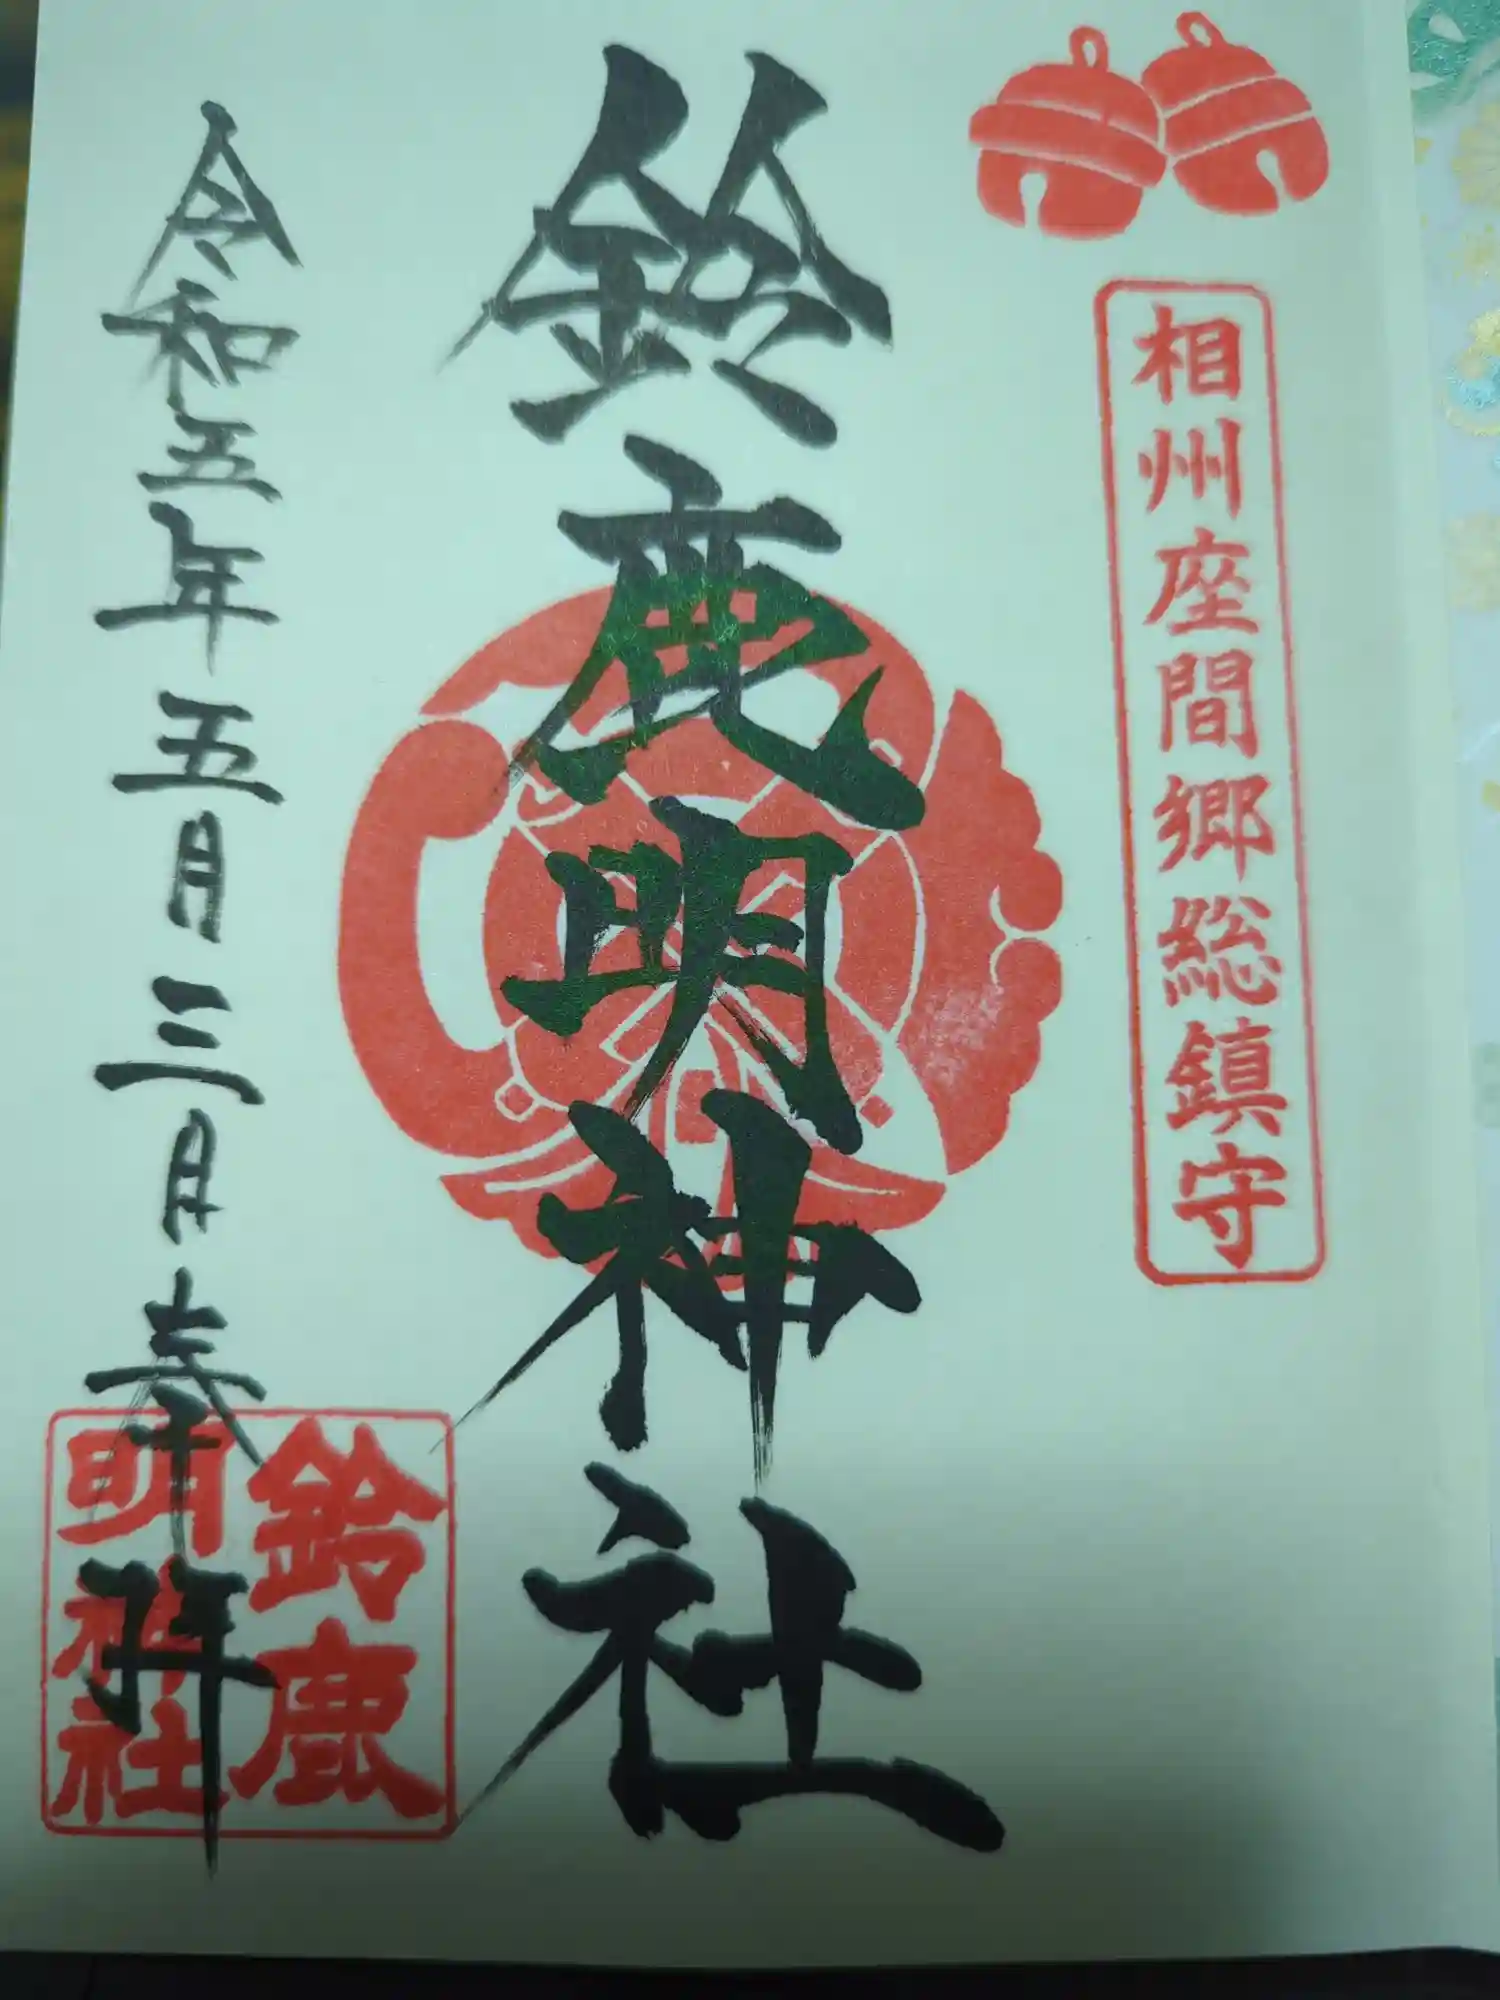 相州座間郷総鎮守
鈴鹿明神社
令和五年五月三日
奉拝
鈴鹿
明神社